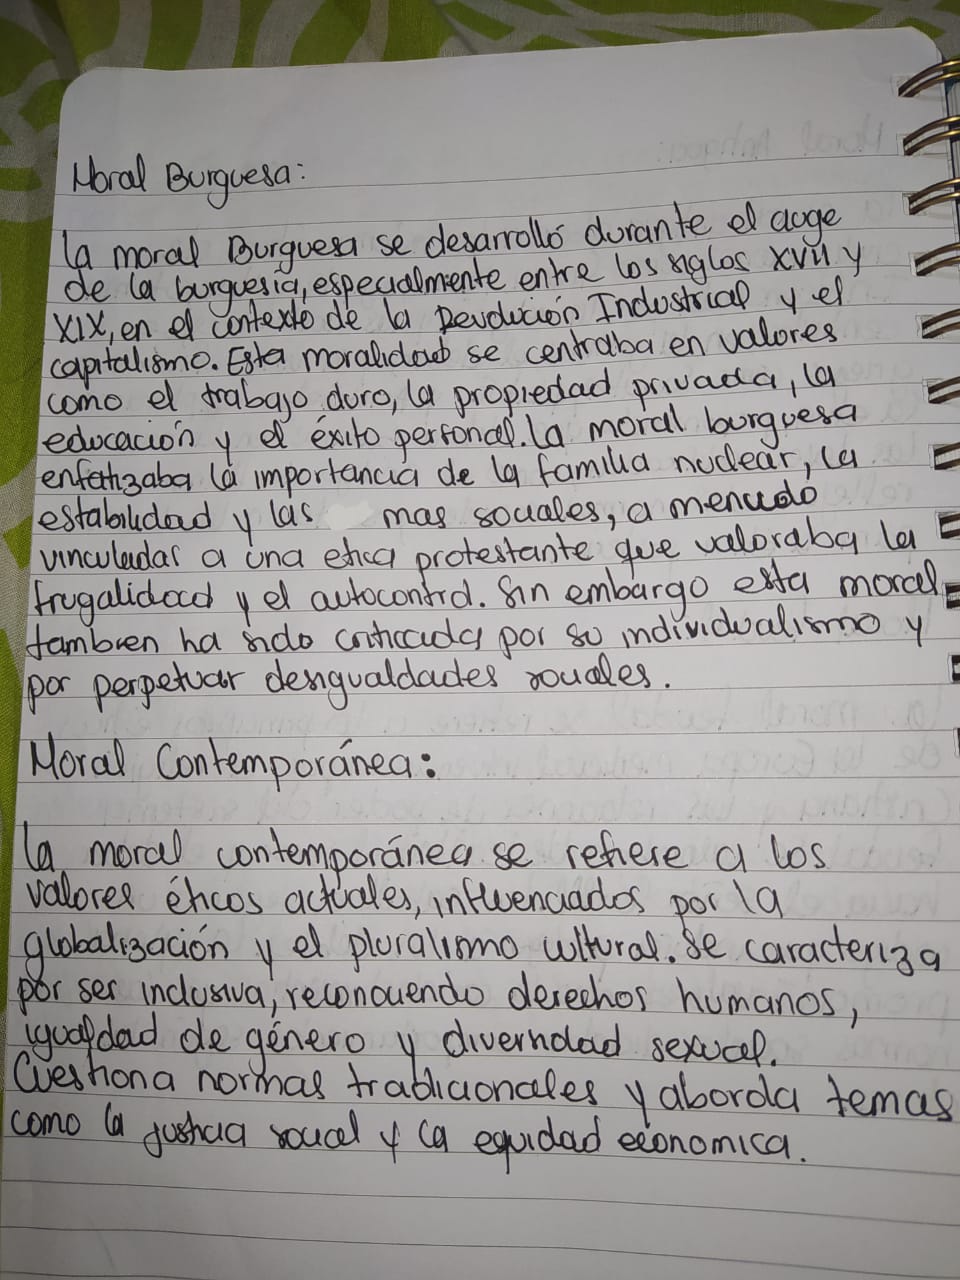 Moral Burguesa:
la moral Burguesa se desarrolló durante el auge
de la burguesía, especialmente entre los siglos XVII y
XIX, en el contexto de la Revolución Industrial y el
capitalismo. Esta moralidad se centraba en valores
como el trabajo duro, la propiedad privada, la
educación y el éxito personal. la moral burguesa
enfatizaba la importancia de la familia nuclear, la
estabilidad y las mas sociales, a menudo
vinculadas a una etica protestante que valoraba la
frugalidad y el autocontrol. Sin embargo esta moral
tambien ha sido criticada por su individualismo y
por perpetuar desigualdades sociales.
Moral Contemporánea:
la moral contemporánea se refiere a los
valores éticos actuales, influenciados por la
globalización y el pluralismo cultural. Se caracteriza
por ser inclusiva, reconociendo derechos humanos,
igualdad de género y diversidad sexual.
Cuestiona normas tradicionales y aborda temas
como la justicia social y la equidad economica.